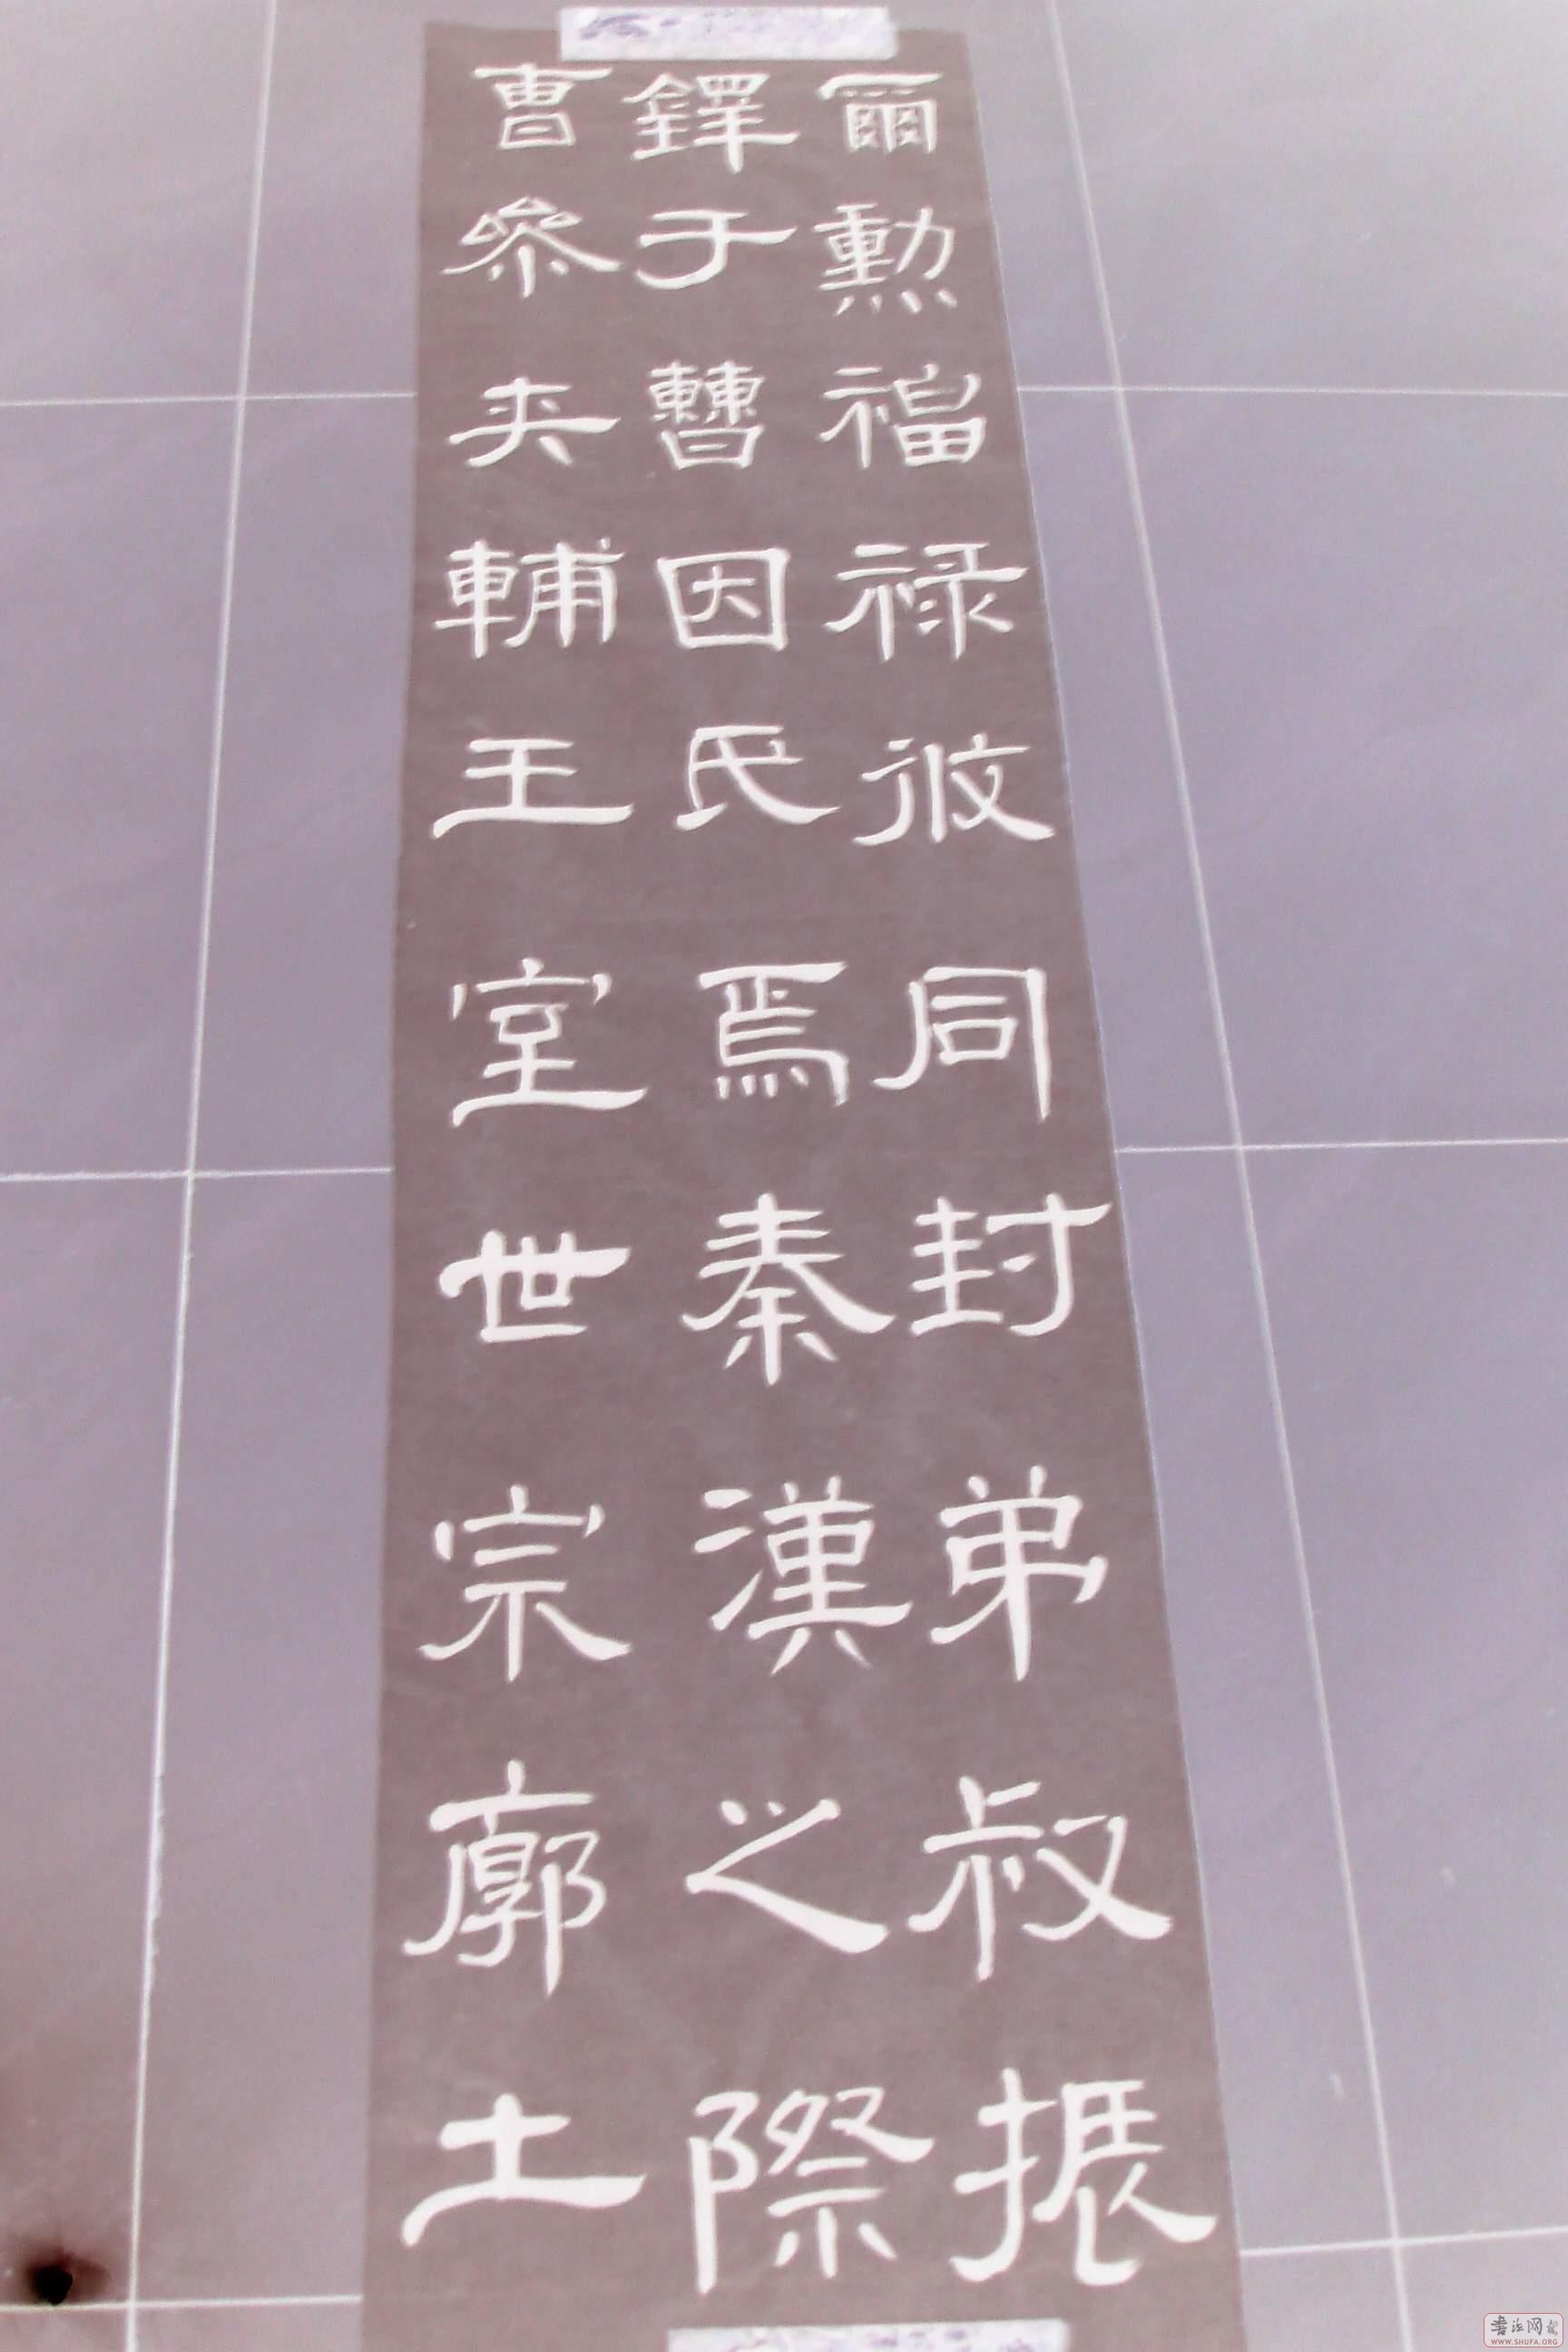 爾勳福禄攸同封弟叔振
鐸于曹因氏焉秦漢之際
曹參夾輔王室世宗廓土
WWW.SHUFA.ORG